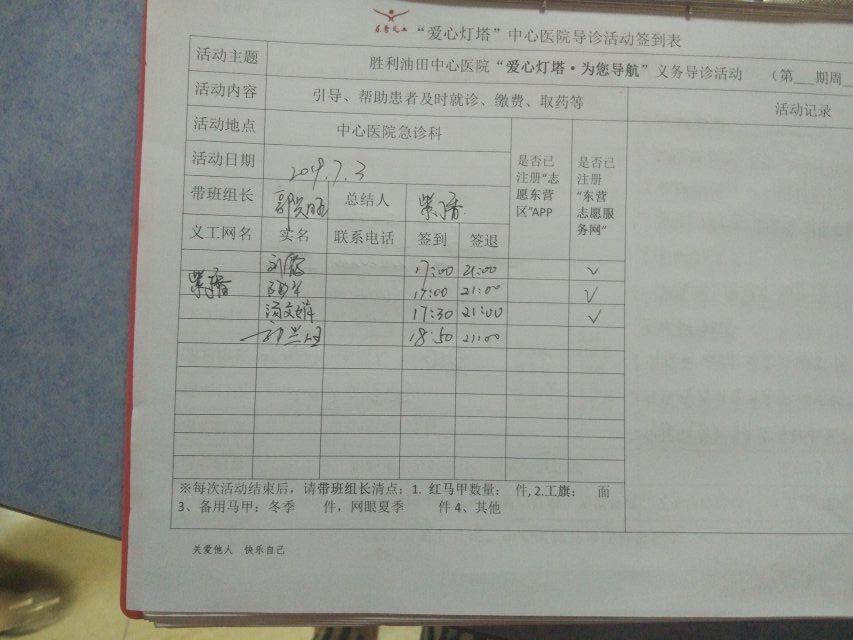 “爱心灯塔”中心医院导诊活动签到表
活动主题 胜利油田中心医院“爱心灯塔·为您导航”义务导诊活动 （第__期周_
活动内容 引导、帮助患者及时就诊、缴费、取药等 活动记录
活动地点 中心医院急诊科 是否已注册“志愿东营区”APP 是否已注册“东营志愿服务网”
活动日期 2019.7.3
带班组长 总结人 紫香
义工网名 实名 联系电话 签到 签退
17:00 21:00 ✓
紫香 17:00 21:00 ✓
17:30 21:00 ✓
18:50 21:00
※每次活动结束后，请带班组长清点：1. 红马甲数量： 件,2.工旗： 面
3、备用马甲：冬季 件，网眼夏季 件 4、其他
关爱他人 快乐自己